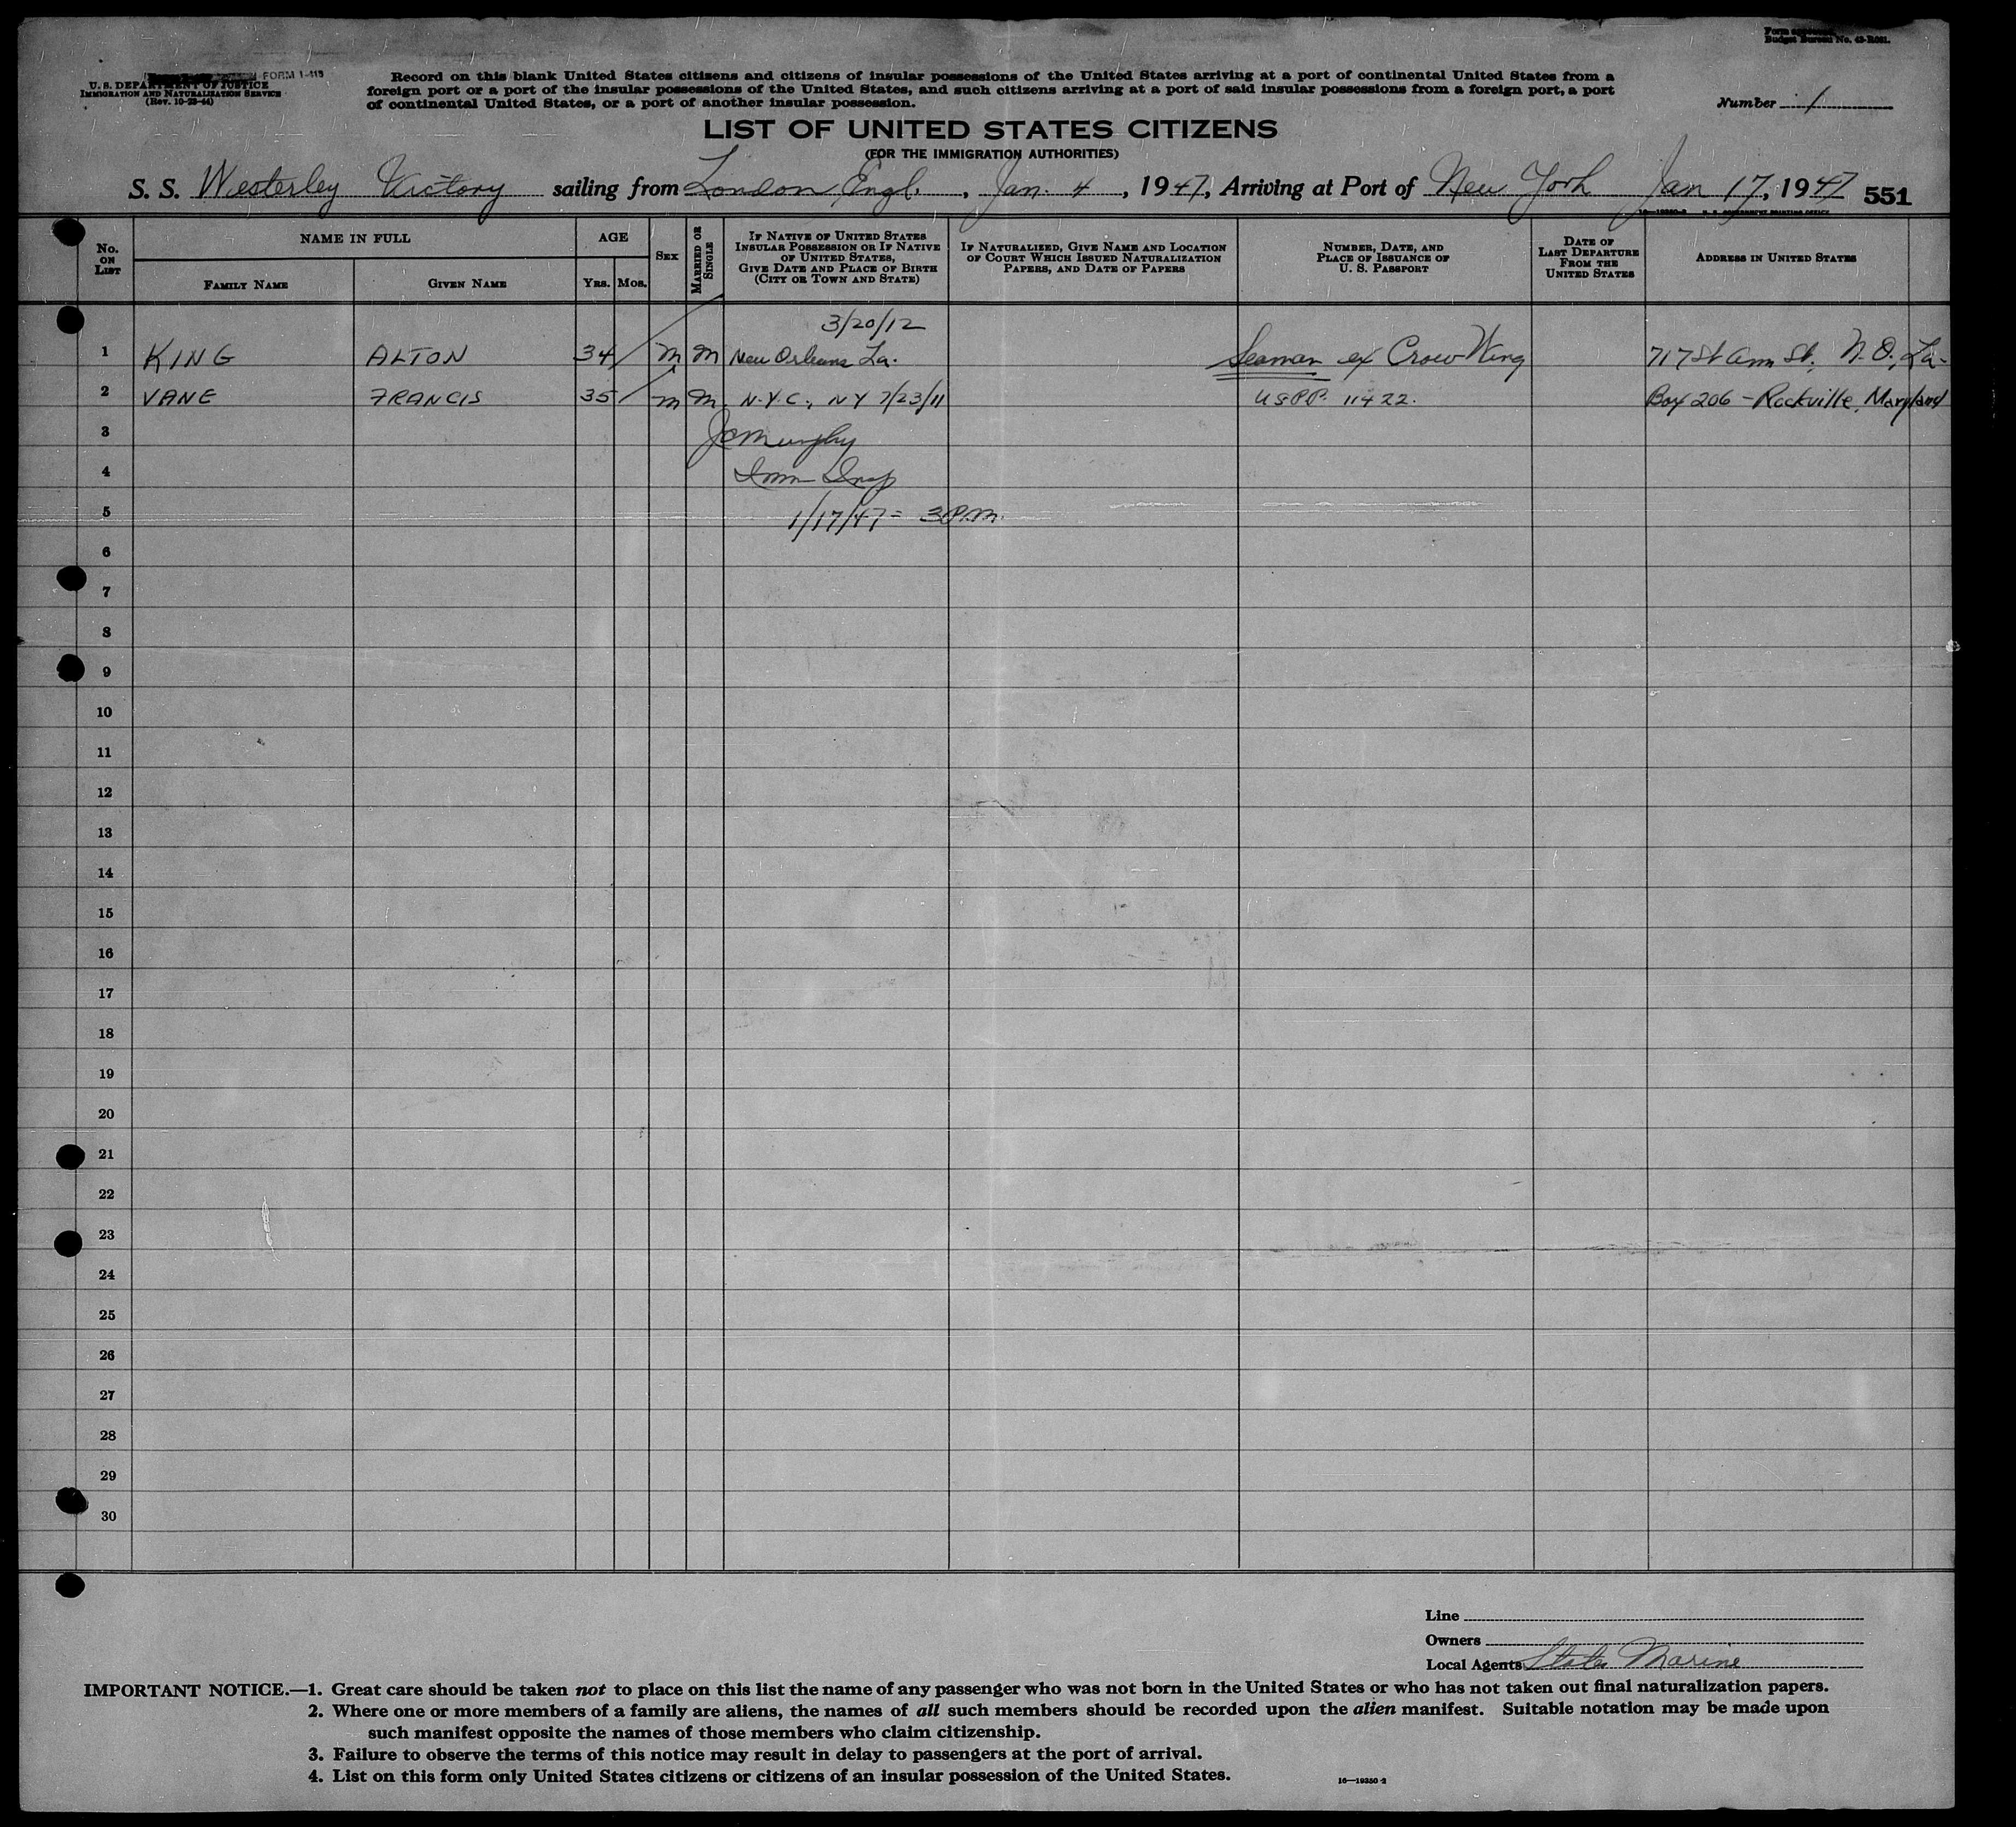 Form approved.
Budget Bureau No. 43-R061.
FORM I-415
U. S. DEPARTMENT OF JUSTICE
IMMIGRATION AND NATURALIZATION SERVICE
(Rev. 10-23-44)
Record on this blank United States citizens and citizens of insular possessions of the United States arriving at a port of continental United States from a
foreign port or a port of the insular possessions of the United States, and such citizens arriving at a port of said insular possessions from a foreign port, a port
of continental United States, or a port of another insular possession.
Number 1
LIST OF UNITED STATES CITIZENS
(FOR THE IMMIGRATION AUTHORITIES)
S. S. Westerley Victory sailing from London, Engl., Jan. 4, 1947, Arriving at Port of New York Jan 17, 1947 551
16—19350-2 U. S. GOVERNMENT PRINTING OFFICE
No. ON LIST
NAME IN FULL
FAMILY NAME
GIVEN NAME
AGE
YRS. MOS.
SEX
MARRIED OR SINGLE
IF NATIVE OF UNITED STATES
INSULAR POSSESSION OR IF NATIVE
OF UNITED STATES,
GIVE DATE AND PLACE OF BIRTH
(CITY OR TOWN AND STATE)
IF NATURALIZED, GIVE NAME AND LOCATION
OF COURT WHICH ISSUED NATURALIZATION
PAPERS, AND DATE OF PAPERS
NUMBER, DATE, AND
PLACE OF ISSUANCE OF
U. S. PASSPORT
DATE OF
LAST DEPARTURE
FROM THE
UNITED STATES
ADDRESS IN UNITED STATES
3/20/12
1 KING ALTON 34 M M New Orleans La. Seaman ex Crow Wing 717 St Ann St. N. O., La.
2 VANE FRANCIS 35 M M N.Y.C., NY 7/23/11 USPP. 11422. Box 206 - Rockville, Maryland
3 JC Murphy
4 Imm Insp
5 1/17/47 = 3 P.M.
6
7
8
9
10
11
12
13
14
15
16
17
18
19
20
21
22
23
24
25
26
27
28
29
30
Line
Owners
Local Agents States Marine
IMPORTANT NOTICE.—1. Great care should be taken not to place on this list the name of any passenger who was not born in the United States or who has not taken out final naturalization papers.
2. Where one or more members of a family are aliens, the names of all such members should be recorded upon the alien manifest. Suitable notation may be made upon
such manifest opposite the names of those members who claim citizenship.
3. Failure to observe the terms of this notice may result in delay to passengers at the port of arrival.
4. List on this form only United States citizens or citizens of an insular possession of the United States.
16—19350-2